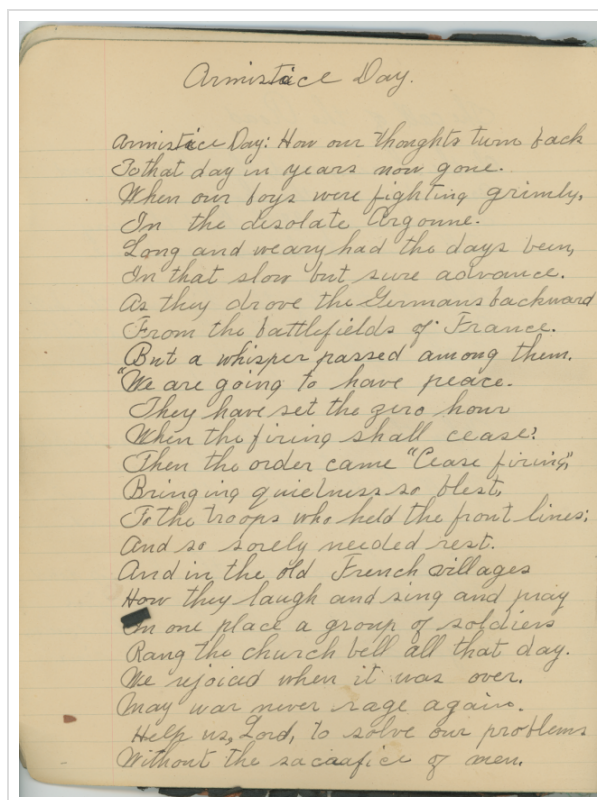 Armistice Day.
Armistice Day: How our thoughts turn back
To that day in years now gone.
When our boys were fighting grimly,
In the desolate Argonne.
Long and weary had the days been,
In that slow but sure advance.
As they drove the Germans backward
From the battlefields of France.
But a whisper passed among them.
"We are going to have peace.
They have set the zero hour
When the firing shall cease?
Then the order came "Cease firing,"
Bringing quietness so blest,
To the troops who held the front lines;
And so sorely needed rest.
And in the old French villages
How they laugh and sing and pray
In one place a group of soldiers
Rang the church bell all that day.
We rejoiced when it was over.
May war never rage again.
Help us, Lord, to solve our problems
Without the sacraafice of men.